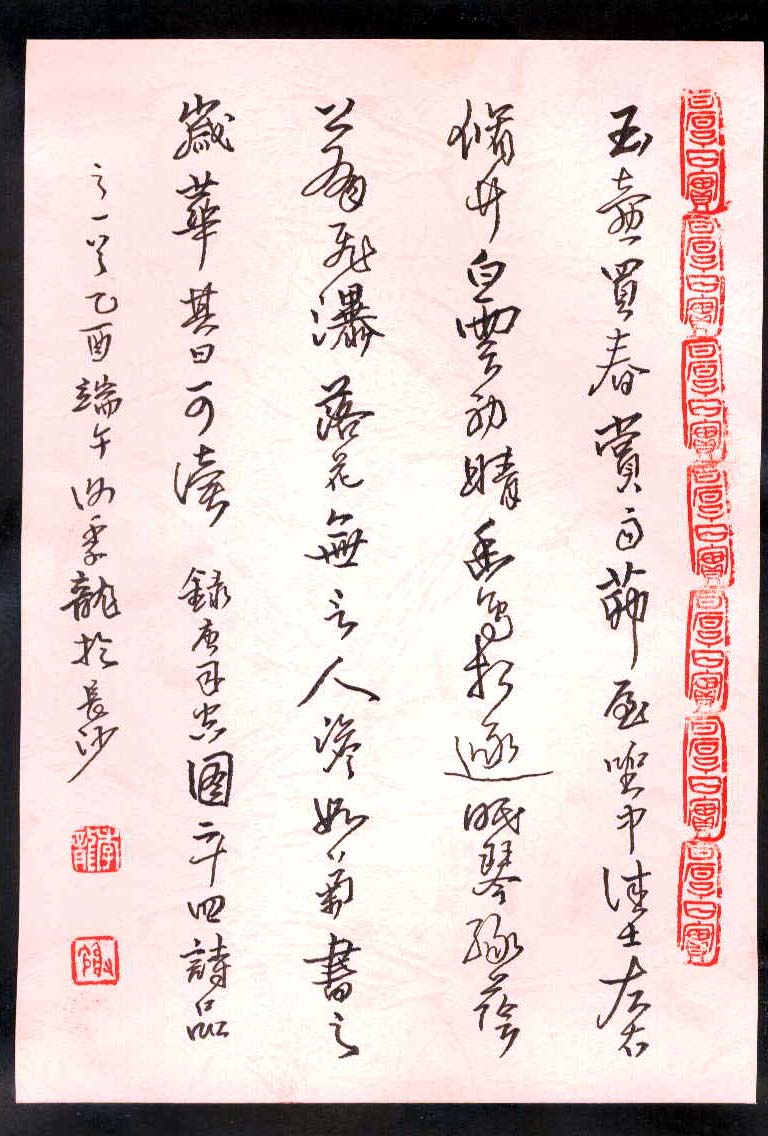 玉壺買春賞雨茆屋坐中佳士左右
脩竹白雲初晴幽鳥相逐眠琴綠蔭
上有飛瀑落花無言人澹如菊書之
歲華其曰可讀 錄唐司空圖二十四詩品
之一 乙酉端午謝季龍於長沙
季龍
謝